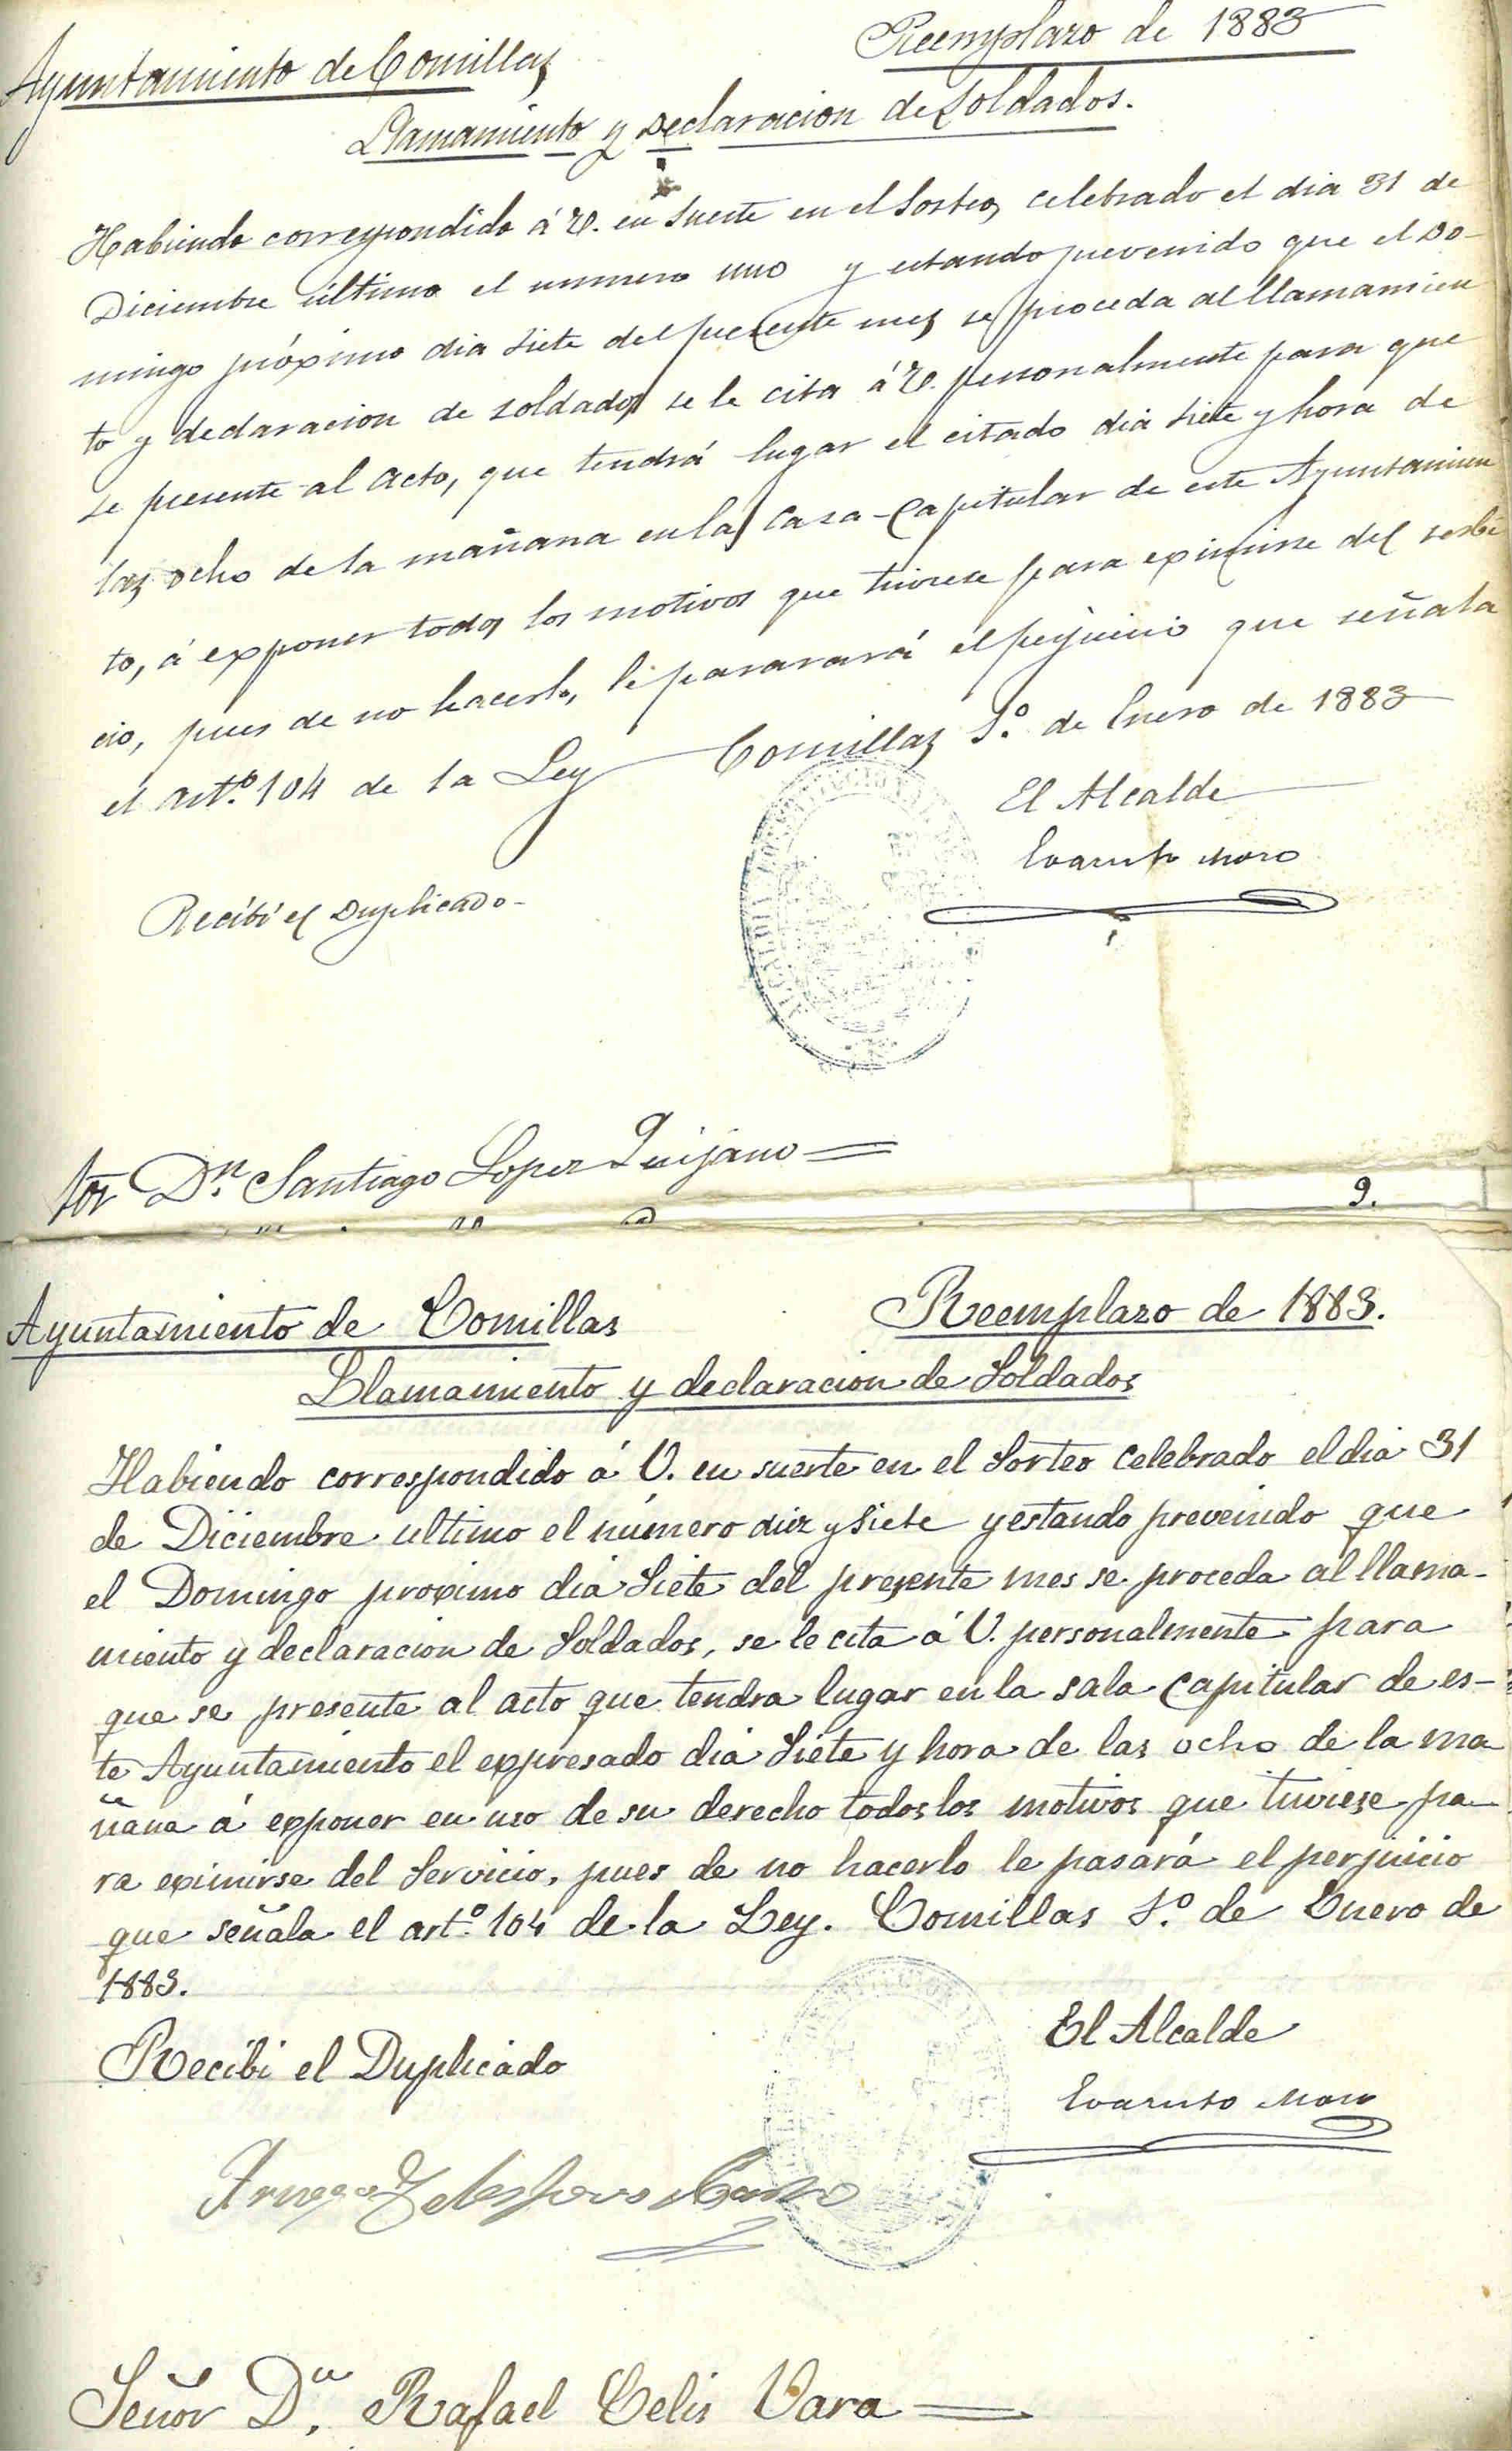 Ayuntamiento de Comillas
Reemplazo de 1883
Llamamiento y Declaracion de Soldados.
Habiendo correspondido á V. en suerte en el Sorteo celebrado el dia 31 de
Diciembre último el numero uno y estando prevenido que el Do-
mingo próximo dia siete del presente mes se proceda al llamamien
to y declaracion de soldados se le cita á V. personalmente para que
se presente al acto, que tendrá lugar el citado dia siete y hora de
las ocho de la mañana en la Casa-Capitular de este Ayuntamien
to, á exponer todos los motivos que tuviese para eximirse del serbi
cio, pues de no hacerlo, le pararará el perjuicio que señala
el artº. 104 de la Ley Comillas 1.º de Enero de 1883
El Alcalde
Evaristo Moro
Recibí el Duplicado-
Sor Dn. Santiago Lopez Quijano =
9.
Ayuntamiento de Comillas
Reemplazo de 1883.
Llamamiento y declaracion de Soldados
Habiendo correspondido á V. en suerte en el Sorteo celebrado el dia 31
de Diciembre ultimo el número diez y siete y estando prevenido que
el Domingo proximo dia Siete del presente mes se proceda al llama-
miento y declaracion de Soldados, se le cita á V. personalmente para
que se presente al acto que tendra lugar en la sala Capitular de es-
te Ayuntamiento el expresado dia Siete y hora de las ocho de la ma
ñana á exponer en uso de su derecho todos los motivos que tuviese pa
ra eximirse del Servicio, pues de no hacerlo le pasará el perjuicio
que señala el artº. 104 de la Ley. Comillas 1.º de Enero de
1883.
El Alcalde
Recibi el Duplicado
Evaristo Moro
Señor Dn. Rafael Celis Vara =